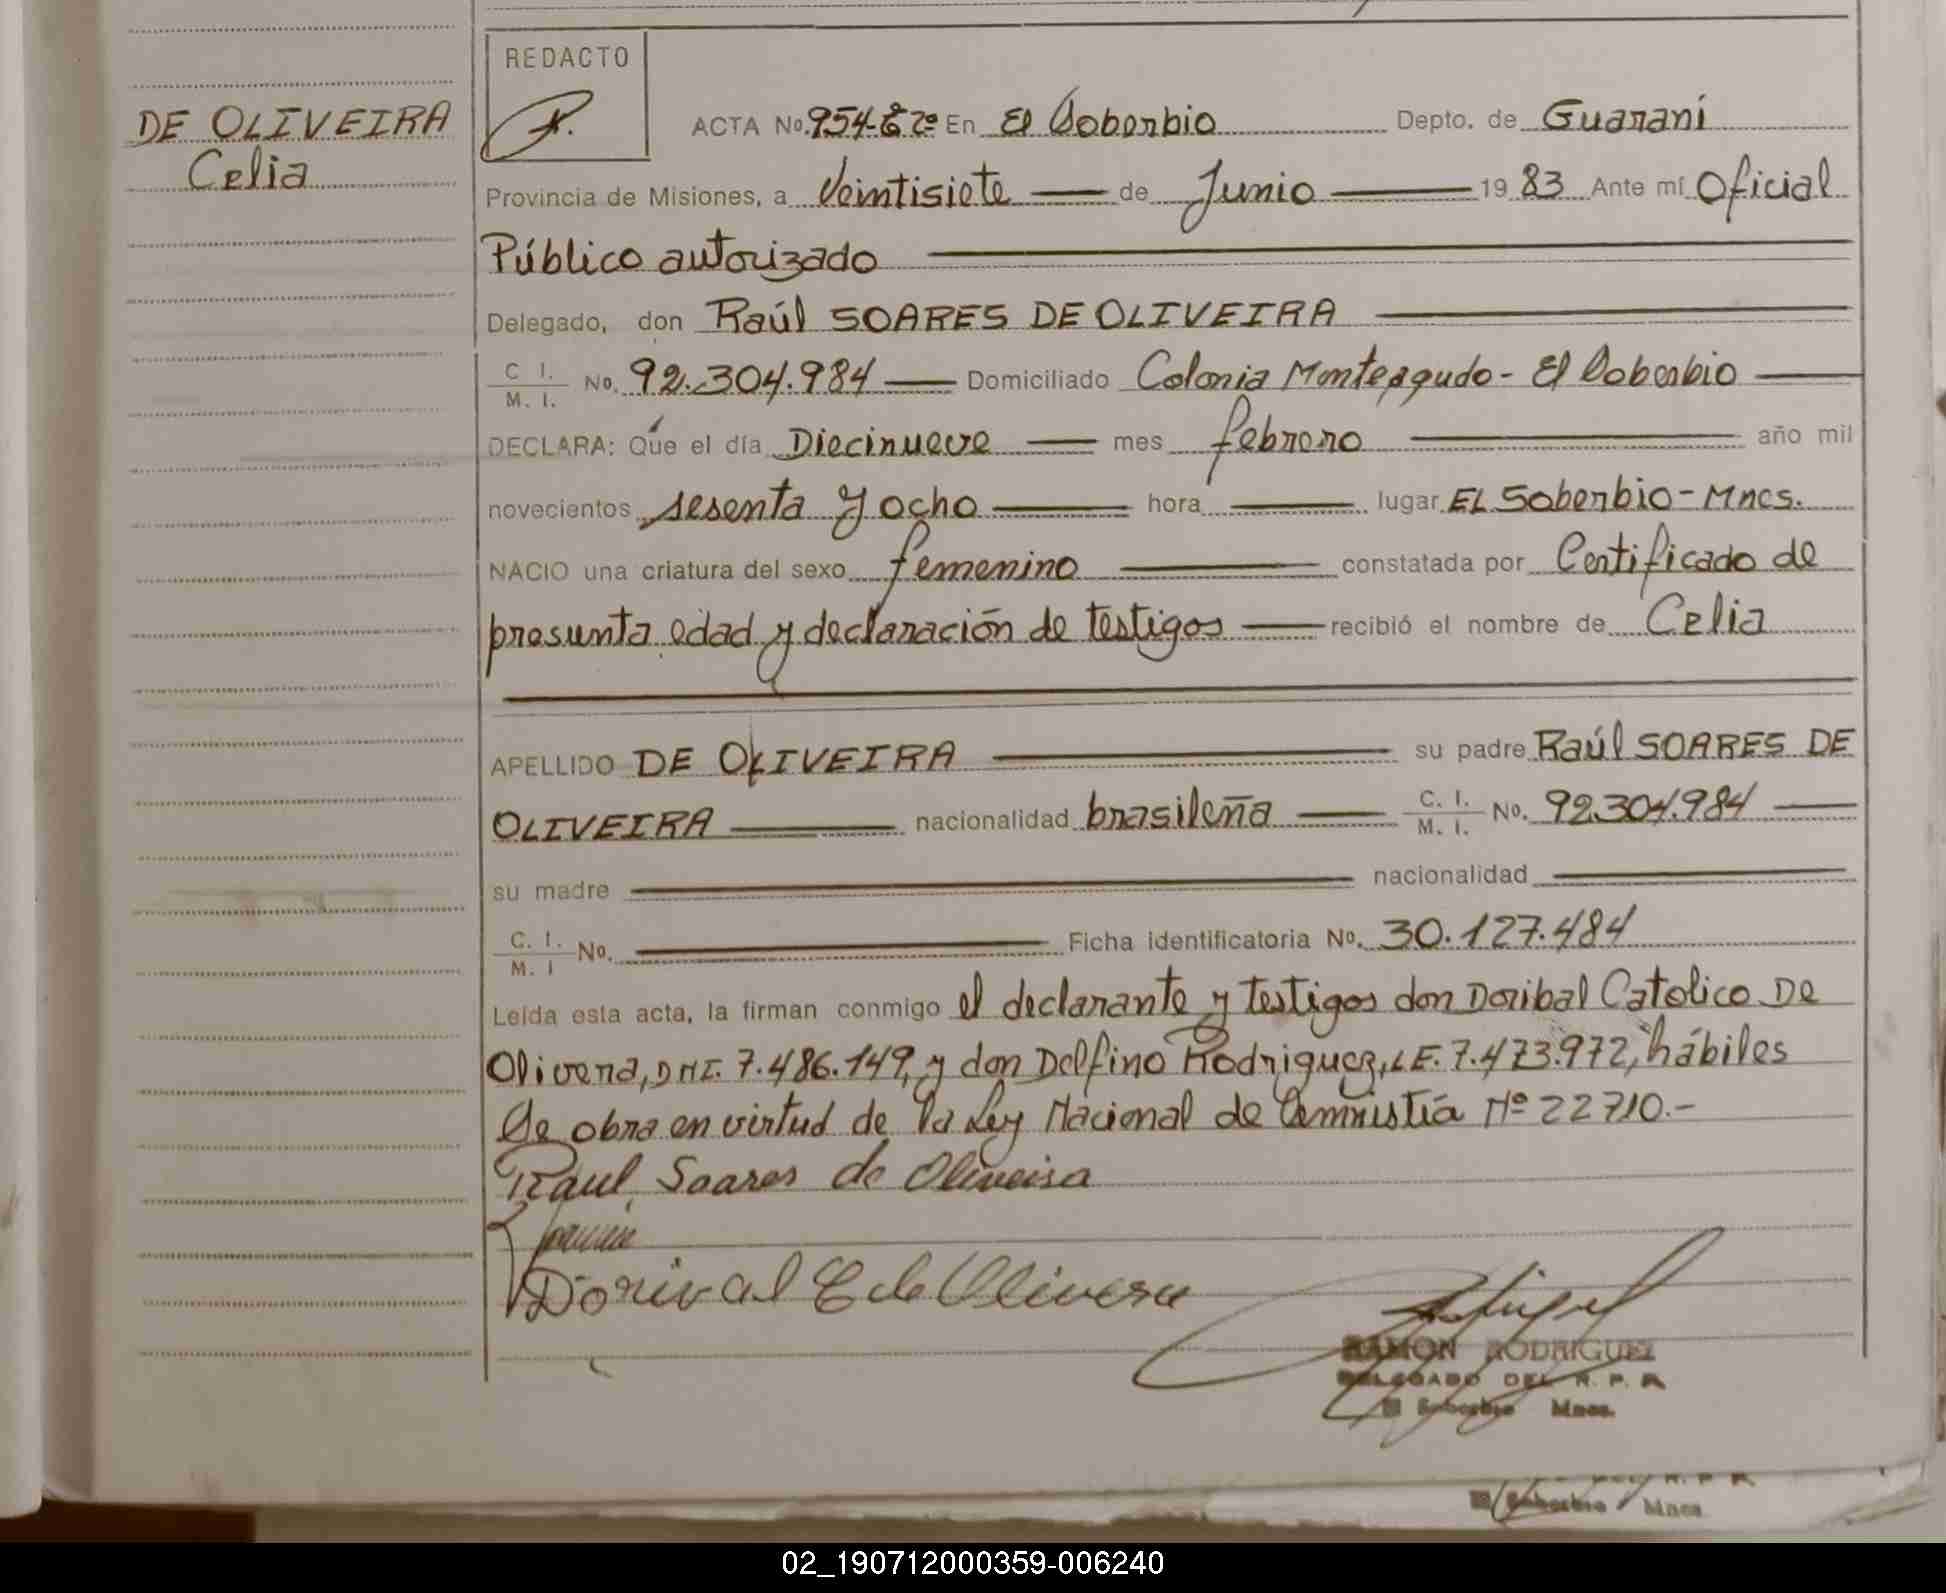 REDACTO
DE OLIVEIRA
Celia
ACTA No. 954-E 7º En El Soberbio Depto. de Guaraní
Provincia de Misiones, a Veintisiete de Junio 19 83 Ante mí Oficial
Público autorizado
Delegado, don Raúl SOARES DE OLIVEIRA
C I. M. I. No. 92.304.984 Domiciliado Colonia Monteagudo - El Soberbio
DECLARA: Que el día Diecinueve mes febrero año mil
novecientos sesenta y ocho hora lugar EL Soberbio - Mnes.
NACIO una criatura del sexo femenino constatada por Certificado de
presunta edad y declaración de testigos recibió el nombre de Celia
APELLIDO DE OLIVEIRA su padre Raúl SOARES DE
OLIVEIRA nacionalidad brasileña C. I. M. I. No. 92.304.984
su madre nacionalidad
C. I. M. I No. Ficha identificatoria No. 30.127.484
Leída esta acta, la firman conmigo el declarante y testigos don Doribal Catolico De
Olivera, DNI. 7.486.149, y don Delfino Rodriguez, LE. 7.473.972, hábiles
Se obra en virtud de la Ley Nacional de Amnistía Nº 22710.-
Raul Soares de Oliveira
Dorival C de Olivera
RAMON RODRIGUEZ
DELEGADO DEL R. P. P.
El Soberbio Mnes.
El Soberbio Mnes
02_190712000359-006240